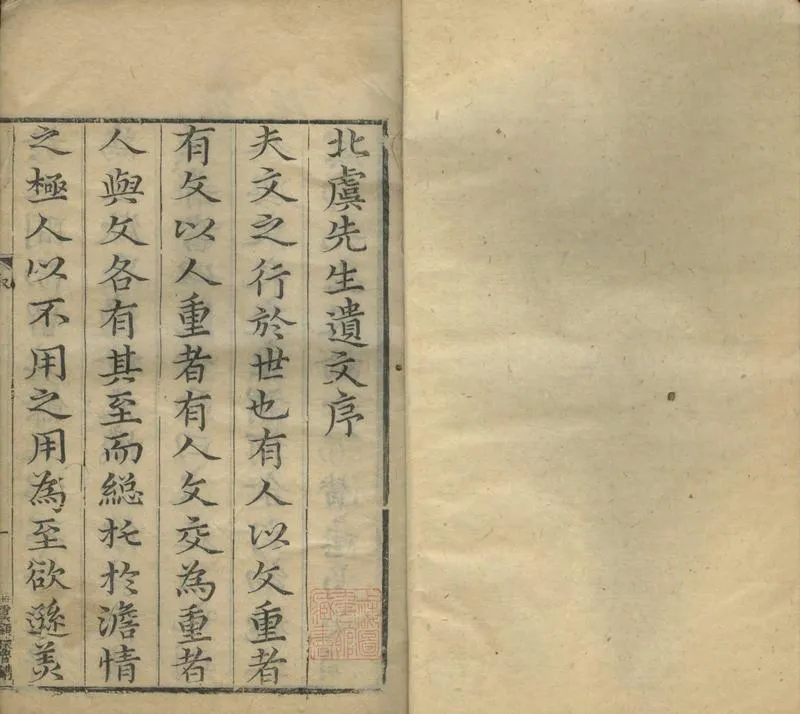 北虞先生遺文序
夫文之行於世也有人以文重者
有文以人重者有人文交為重者
人與文各有其至而総托於澹情
之極人以不用之用為至欲遜美